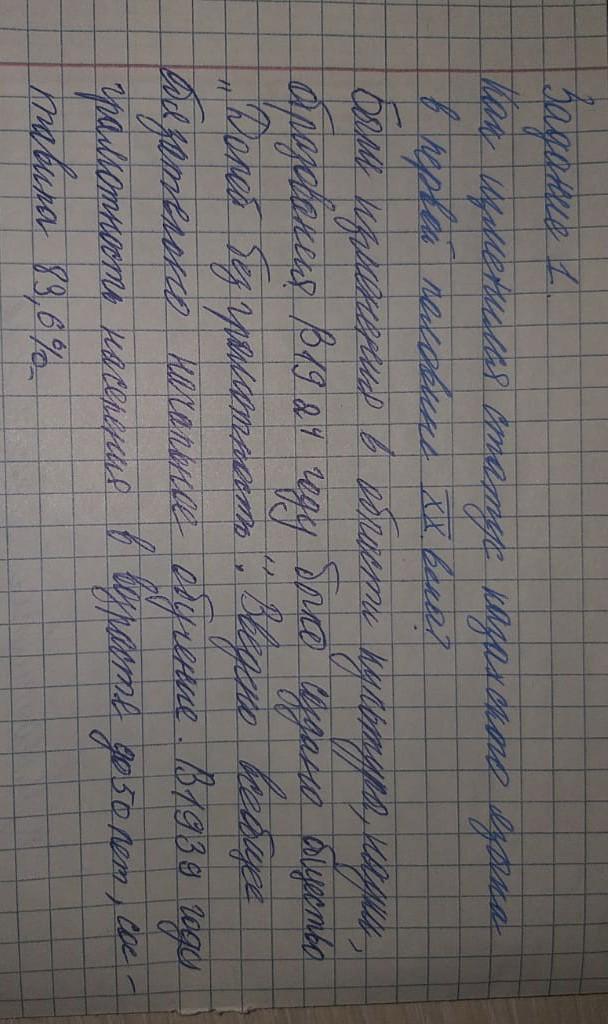 Задание 1.
Как изменился статус казахского языка
в первой половине XX века?
были изменения в области культуры, науки,
образования. В 1924 году было создано общество
"Долой безграмотность". Введено всеобщее
обязательное начальное обучение. В 1939 году
грамотность населения в возрасте до 50 лет, сос-
тавила 83,6%